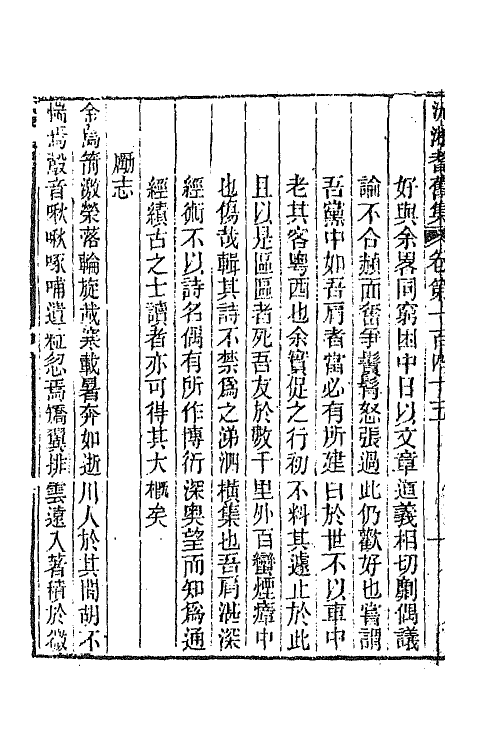 沅湘耆舊集 卷第一百四十五
好與余畧同窮困中日以文章道義相切劘偶議
論不合頳而奮爭鬢髯怒張過此仍歡好也嘗謂
吾黨中如吾肩者當必有所建白於世不以車中
老其客粵西也余實促之行初不料其遽止於此
且以是區區者死吾友於數千里外百蠻煙瘴中
也傷哉輯其詩不禁爲之涕泗橫集也吾肩湛深
經術不以詩名偶有所作博衍深奧望而知爲通
經績古之士讀者亦可得其大概矣
勵志
金烏箭激榮落輪旋裁粢載暑奔如逝川人於其間胡不
惴焉鷇音啾啾啄哺遺粒忽焉矯翼排雲遠入著積於微